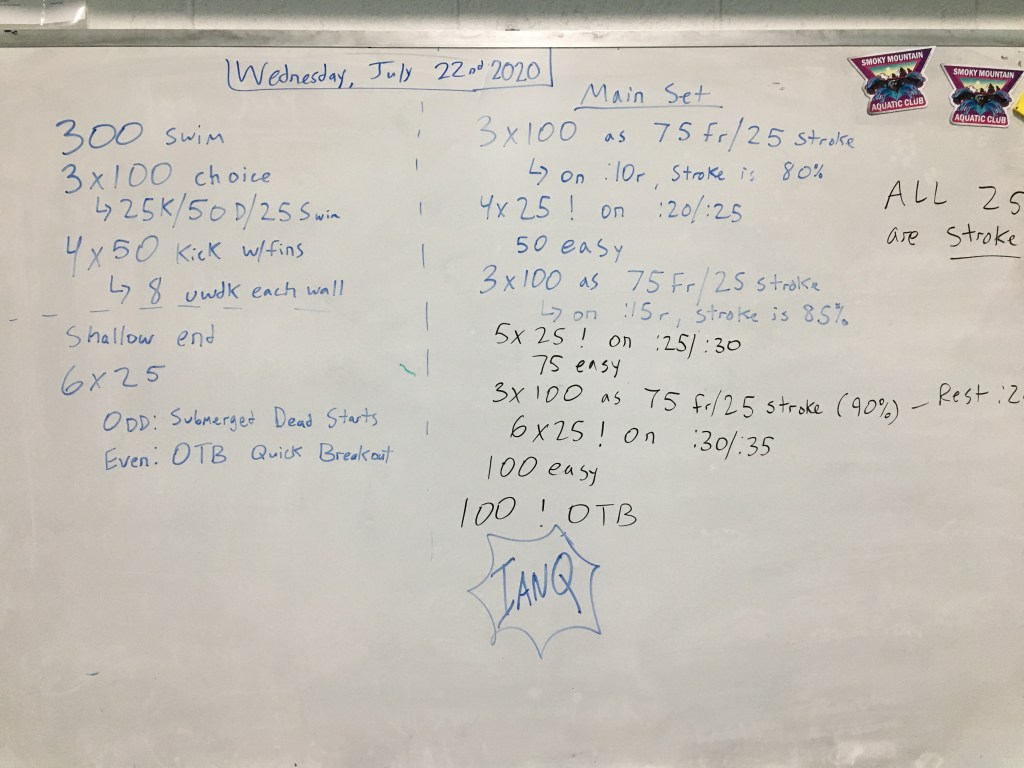 Wednesday, July 22nd 2020
300 swim
3x100 choice
↳ 25K/50D/25 Swim
4x50 Kick w/fins
↳ 8 uwdk each wall
Shallow end
6x25
ODD: Submerged Dead Starts
Even: OTB Quick Breakout
Main Set
3x100 as 75 fr/25 stroke
↳ on :10r, stroke is 80%
4x25 ! on :20/:25
50 easy
3x100 as 75 Fr/25 stroke
↳ on :15r, stroke is 85%
5x25 ! on :25/:30
75 easy
3x100 as 75 fr/25 stroke (90%) - Rest :2
6x25 ! on :30/:35
100 easy
100 ! OTB
IANQ
ALL 25
are Stroke
SMOKY MOUNTAIN
AQUATIC CLUB
SMOKY MOUNTAIN
AQUATIC CLUB